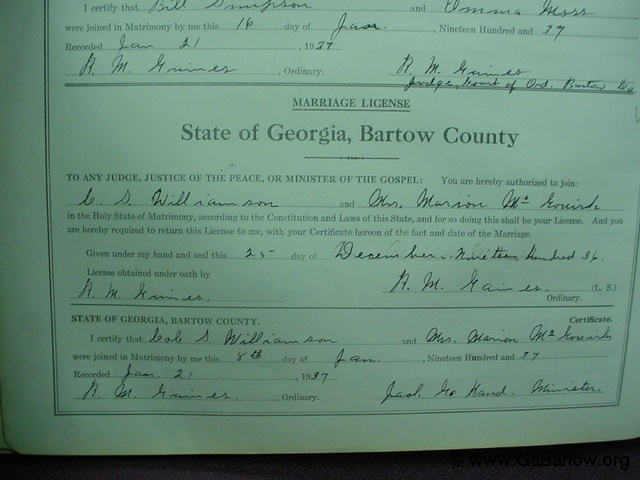 I certify that Bill Simpson and Emma Moss
were joined in Matrimony by me this 16 day of Jan. , Nineteen Hundred and 37
Recorded Jan 21 , 1937
R. M. Gaines , Ordinary. R. M. Gaines
Judge, Court of Ord. Bartow Co
MARRIAGE LICENSE
State of Georgia, Bartow County
TO ANY JUDGE, JUSTICE OF THE PEACE, OR MINISTER OF THE GOSPEL: You are hereby authorized to join:
C. S. Williamson and Mrs. Marion
in the Holy State of Matrimony, according to the Constitution and Laws of this State, and for so doing this shall be your License. And you
are hereby required to return this License to me, with your Certificate hereon of the fact and date of the Marriage.
Given under my hand and seal this 25 day of December Nineteen Hundred 36.
License obtained under oath by R. M. Gaines. (L. S.)
R. M. Gaines. Ordinary.
STATE OF GEORGIA, BARTOW COUNTY. Certificate.
I certify that Cole S. Williamson and Mrs. Marion
were joined in Matrimony by me this 8th day of Jan. , Nineteen Hundred and 37
Recorded Jan. 21 , 1937
R. M. Gaines. , Ordinary. Jack G. Hand. Minister.
© www.GaBartow.org